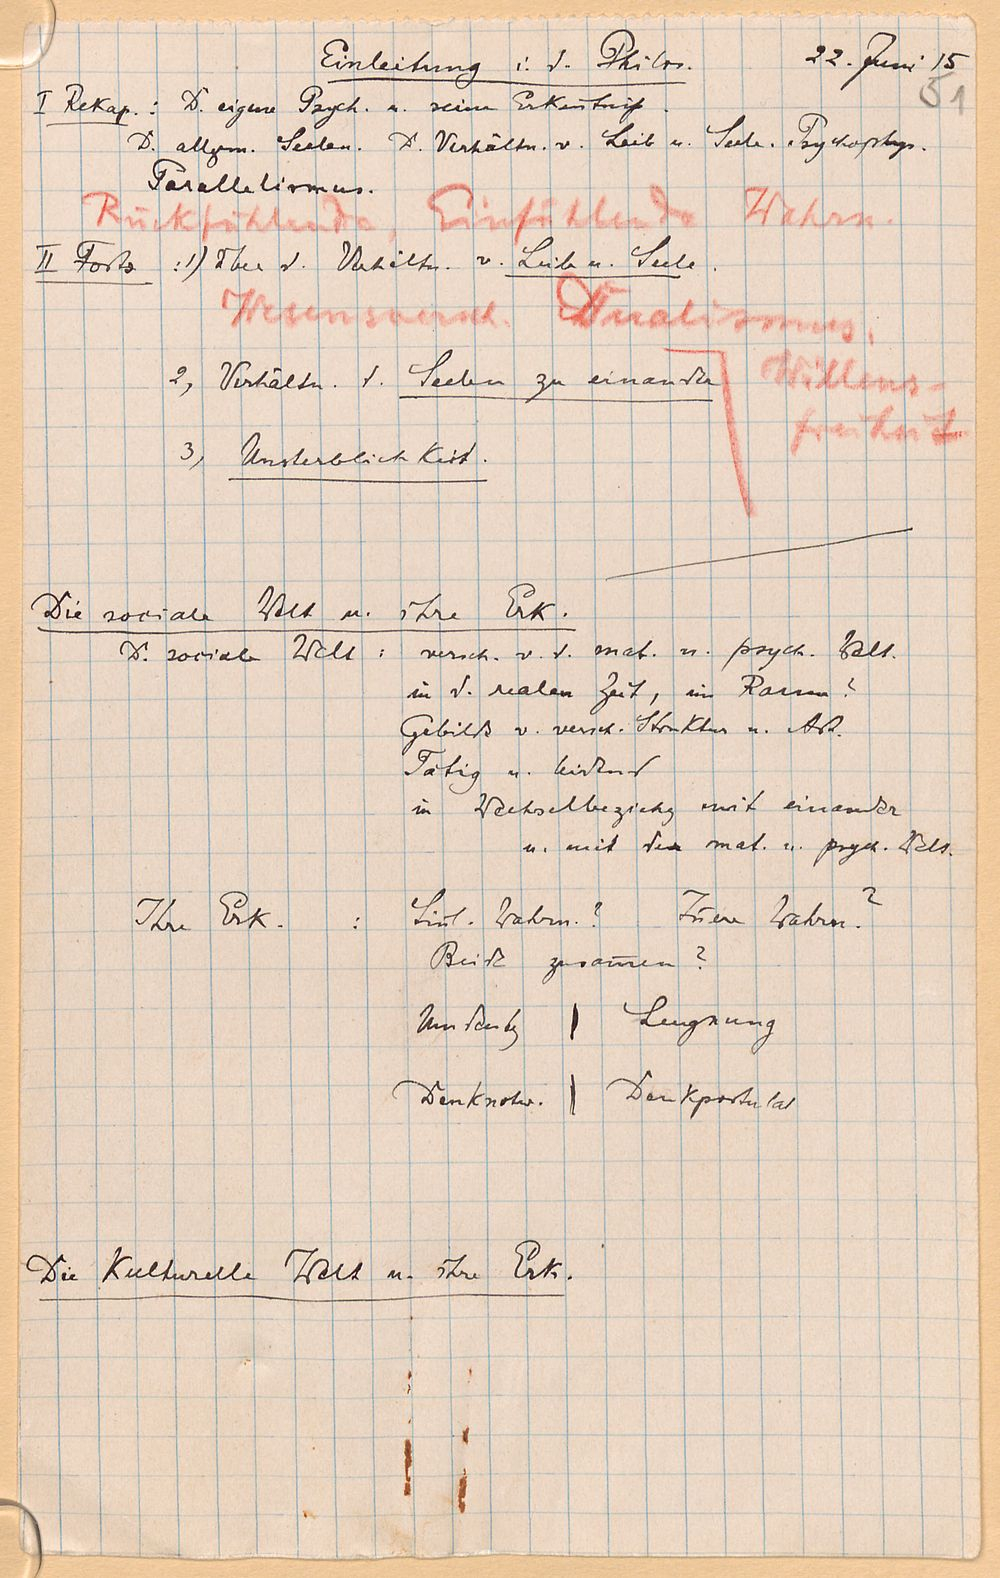 Einleitung i. d. Philos. 22. Juni 15
51
I Rekap. : D. eigene Psych. u. seine Erkenntniß.
D. allgem. Seelen. D. Verhältn. v. Leib u. Seele. Psychophys.
Parallelismus.
Rückfühlende, Einfühlende Wahrn.
II Forts : 1) Über d. Verhältn. v. Leib u. Seele.
Wesensversch. Dualismus.
2, Verhältn. d. Seelen zu einander
Willens-
freiheit
3, Unsterblichkeit.
Die sociale Welt u. ihre Erk.
D. sociale Welt : versch. v. d. mat. u. psych. Welt.
in d. realen Zeit, im Raum?
Gebilde v. versch. Struktur u. Art.
Tätig u. leidend
in Wechselbeziehg mit einander
u. mit der mat. u. psych. Welt.
Ihre Erk. : Sinl. Wahrn.? Inere Wahrn.?
Beide zusamen?
Umdeutg | Leugnung
Denknotw. | Denkpostulat
Die Kulturelle Welt u. ihre Erk.